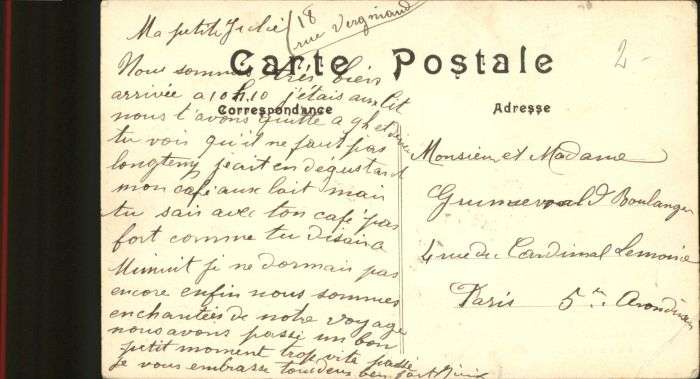 Ma petite Julie
18
rue Vergniaud
Carte Postale
2-
Correspondance
Adresse
Nous sommes très bien
arrivée a 10h.10 j'étais au lit
nous t'avons quitté a 9h et demi
tu vois qu'il ne faut pas
longtemp
mon café aux lait mais
tu sais avec ton café pas
fort comme tu disai a
Minuit je ne dormais pas
encore enfin nous sommes
enchantées de notre voyage
nous avons passé un bon
petit moment trop vite passé
je vous embrasse tous deux bien fort
Monsieur et Madame
Boulanger
4 rue du Cardinal Lemoine
Paris 5me